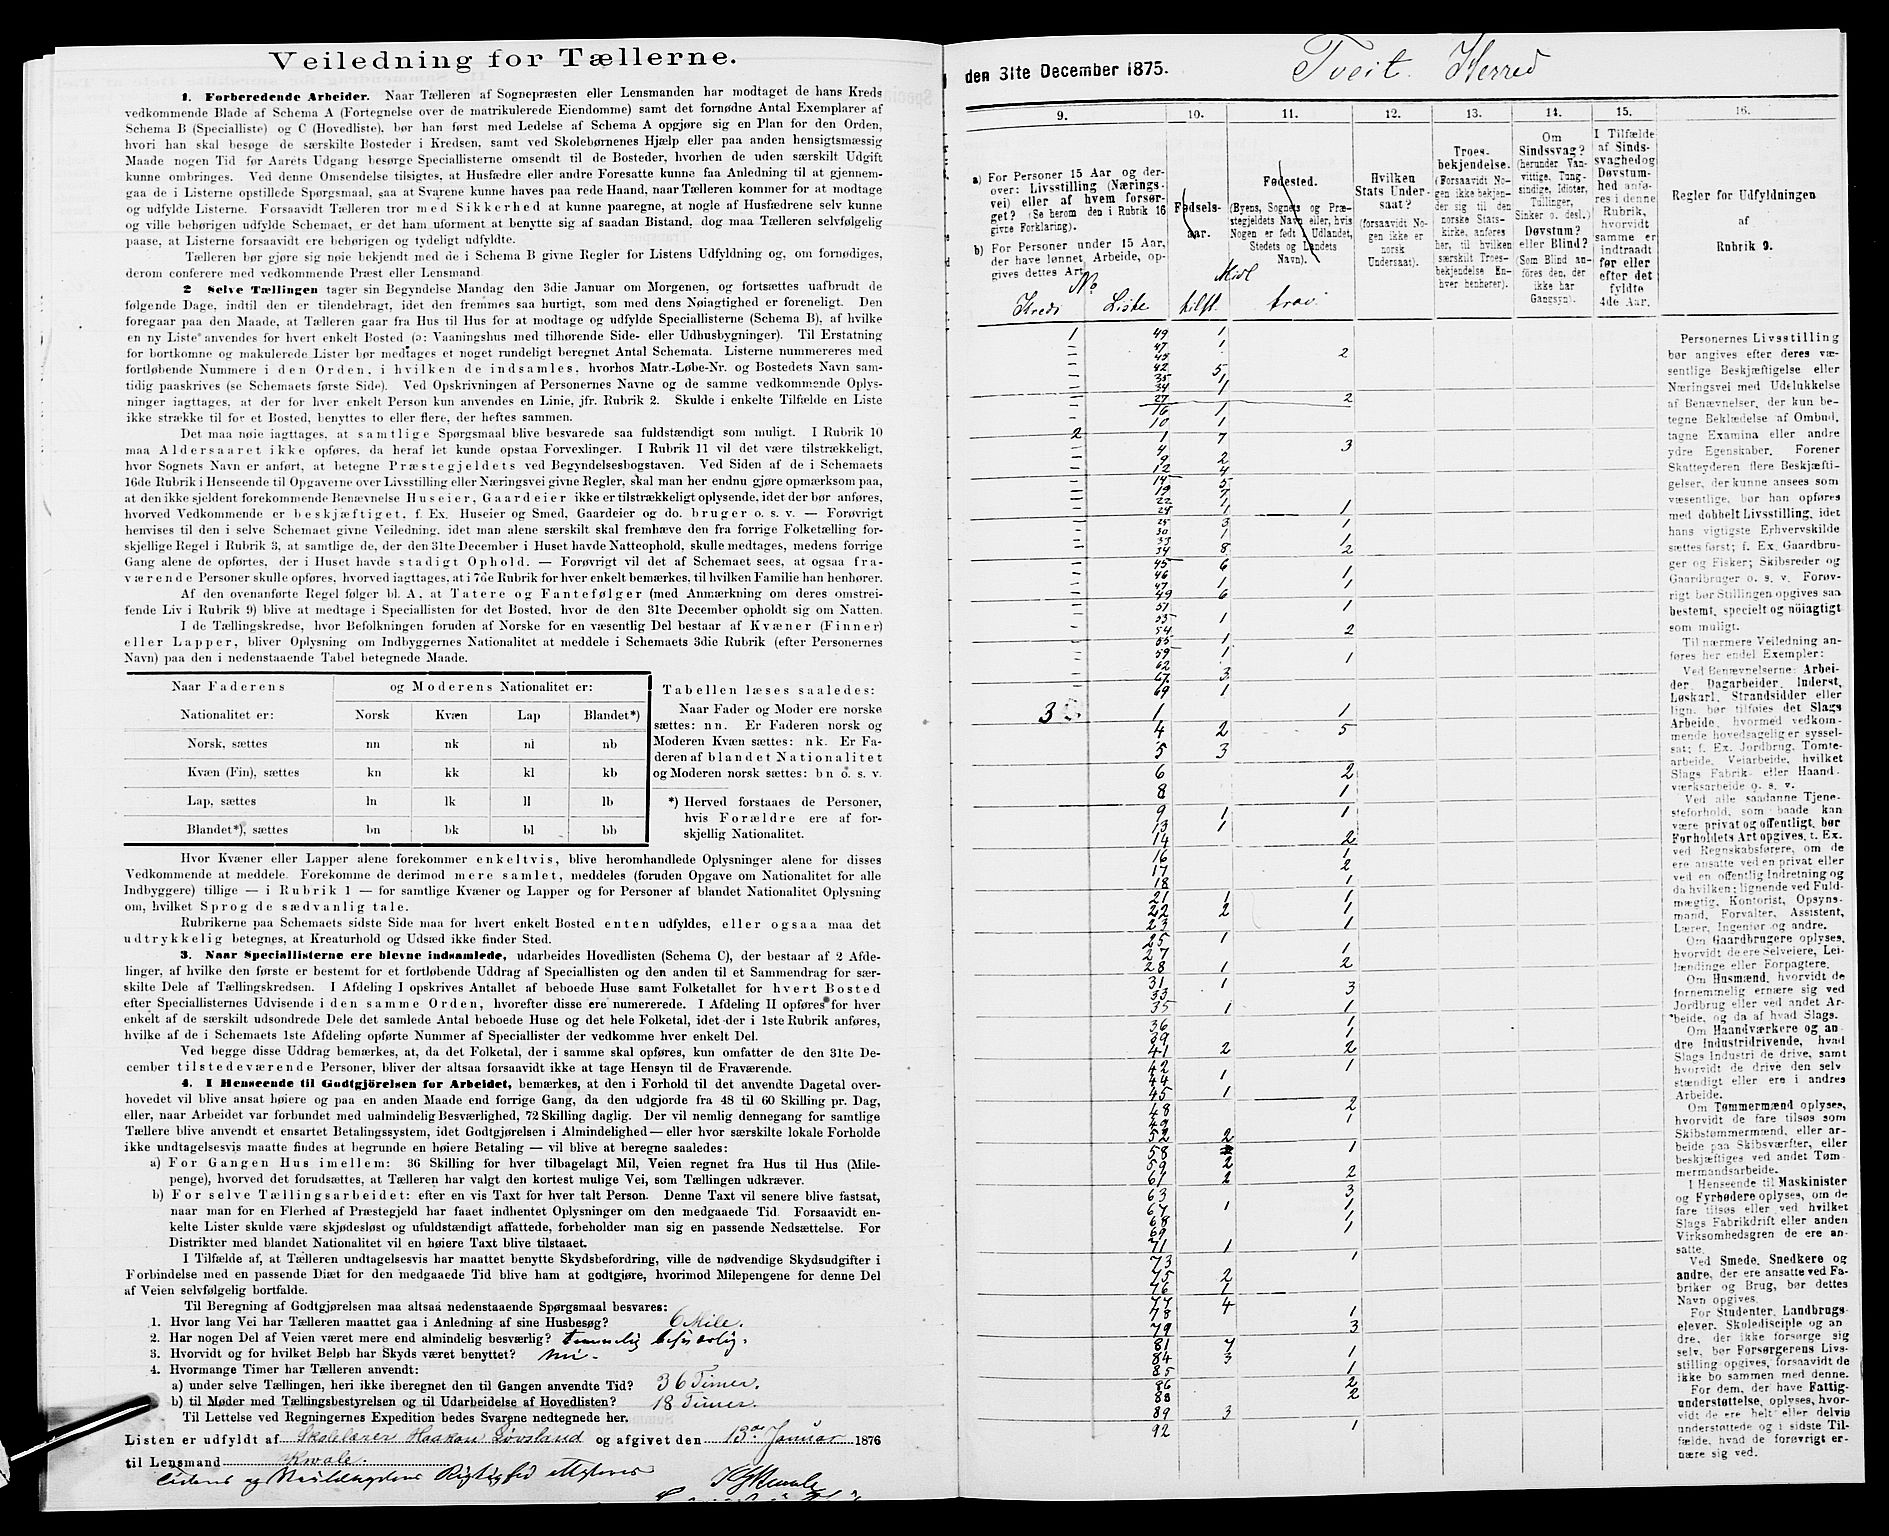 Veiledning for Tællerne.
1. Forberedende Arbeider. Naar Tælleren af Sognepræsten eller Lensmanden har modtaget de hans Kreds
vedkommende Blade af Schema A (Fortegnelse over de matrikulerede Eiendomme) samt det fornødne Antal Exemplarer af
Schema B (Specialliste) og C (Hovedliste), bør han først med Ledelse af Schema A opgjøre sig en Plan for den Orden,
hvori han skal besøge de særskilte Bosteder i Kredsen, samt ved Skolebørnenes Hjælp eller paa anden hensigtsmæssig
Maade nogen Tid før Aarets Udgang besørge Speciallisterne omsendt til de Bosteder, hvorhen de uden særskilt Udgift
kunne ombringes. Ved denne Omsendelse tilsigtes, at Husfædre eller andre Foresatte kunne faa Anledning til at gjennem-
gaa de i Listerne opstillede Spørgsmaal, saa at Svarene kunne haves paa rede Haand, naar Tælleren kommer for at modtage
og udfylde Listerne. Forsaavidt Tælleren tror med Sikkerhed at kunne paaregne, at nogle af Husfædrene selv kunne
og ville behørigen udfylde Schemaet, er det ham uforment at benytte sig af saadan Bistand, dog maa Tælleren selvfølgelig
paase, at Listerne forsaavidt ere behørigen og tydeligt udfyldte.
Tælleren bør gjøre sig nøie bekjendt med de i Schema B givne Regler for Listens Udfyldning og, om fornødiges,
derom conferere med vedkommende Præst eller Lensmand.
2 Selve Tællingen tager sin Begyndelse Mandag den 3die Januar om Morgenen, og fortsættes uafbrudt de
følgende Dage, indtil den er tilendebragt, idet den fremmes saa hurtigt, som med dens Nøiagtighed er foreneligt. Den
foregaar paa den Maade, at Tælleren gaar fra Hus til Hus for at modtage og udfylde Speciallisterne (Schema B), af hvilke
en ny Liste anvendes for hvert enkelt Bosted (ɔ: Vaaningshus med tilhørende Side- eller Udhusbygninger). Til Erstatning
for bortkomne og makulerede Lister bør medtages et noget rundeligt beregnet Antal Schemata. Listerne nummereres med
fortløbende Nummere i den Orden, i hvilken de indsamles, hvorhos Matr.-Løbe-Nr. og Bostedets Navn sam-
tidig paaskrives (se Schemaets første Side). Ved Opskrivningen af Personernes Navne og de samme vedkommende Oplys-
ninger iagttages, at der for hver enkelt Person kun anvendes en Linie, jfr. Rubrik 2. Skulde i enkelte Tilfælde en Liste
ikke strække til for et Bosted, benyttes to eller flere, der heftes sammen.
Det maa nøie iagttages, at samtlige Spørgsmaal blive besvarede saa fuldstændigt som muligt. I Rubrik 10
maa Aldersaaret ikke opføres, da heraf let kunde opstaa Forvexlinger. I Rubrik 11 vil det være tilstrækkeligt,
hvor Sognets Navn er anført, at betegne Præstegjeldets ved Begyndelsesbogstaven. Ved Siden af de i Schemaets
16de Rubrik i Henseende til Opgaverne over Livsstilling eller Næringsvei givne Regler, skal man her endnu gjøre opmærksom paa,
at den ikke sjeldent forekommende Benævnelse Huseier, Gaardeier ikke er tilstrækkeligt oplysende, idet der bør anføres,
hvorved Vedkommende er beskjæftiget, f. Ex. Huseier og Smed, Gaardeier og do. bruger o. s. v. — Forøvrigt
henvises til den i selve Schemaet givne Veiledning, idet man alene særskilt skal fremhæve den fra forrige Folketælling for-
skjellige Regel i Rubrik 3, at samtlige de, der den 31te December i Huset havde Natteophold, skulle medtages, medens forrige
Gang alene de opførtes, der i Huset havde stadigt Ophold. — Forøvrigt vil det af Schemaet sees, at ogsaa fra-
værende Personer skulle opføres, hvorved iagttages, at i 7de Rubrik for hver enkelt bemærkes, til hvilken Familie han henhører.
Af den ovenanførte Regel følger bl. A. at Tatere og Fantefølger (med Anmærkning om deres omstrei-
fende Liv i Rubrik 9) blive at medtage i Speciallisten for det Bosted, hvor de den 31te December opholdt sig om Natten.
I de Tællingskredse, hvor Befolkningen foruden af Norske for en væsentlig Del bestaar af Kvæner (Finner)
eller Lapper, bliver Oplysning om Indbyggernes Nationalitet at meddele i Schemaets 3die Rubrik (efter Personernes
Navn) paa den i nedenstaaende Tabel betegnede Maade.
Naar Faderens og Moderens Nationalitet er:
Nationalitet er: Norsk Kvæn Lap Blandet*)
Norsk, sættes nn nk nl nb
Kvæn (Fin), sættes kn kk kl kb
Lap, sættes ln lk ll lb
Blandet*), sættes bn bk bl bb
Tabellen læses saaledes:
Naar Fader og Moder ere norske
sættes: nn. Er Faderen norsk og
Moderen Kvæn sættes: nk. Er Fa-
deren af blandet Nationalitet
og Moderen norsk sættes: bn o. s. v.
*) Herved forstaaes de Personer,
hvis Forældre ere af for-
skjellig Nationalitet.
Hvor Kvæner eller Lapper alene forekommer enkeltvis, blive heromhandlede Oplysninger alene for disses
Vedkommende at meddele. Forekomme de derimod mere samlet, meddeles (foruden Opgave om Nationalitet for alle
Indbyggere) tillige — i Rubrik 1 — for samtlige Kvæner og Lapper og for Personer af blandet Nationalitet Oplysning
om, hvilket Sprog de sædvanlig tale.
Rubrikerne paa Schemaets sidste Side maa for hvert enkelt Bosted enten udfyldes, eller ogsaa maa det
udtrykkelig betegnes, at Kreaturhold og Udsæd ikke finder Sted.
3. Naar Speciallisterne ere blevne indsamlede, udarbeides Hovedlisten (Schema C), der bestaar af 2 Afde-
linger, af hvilke den første er bestemt for et fortløbende Uddrag af Speciallisten og den anden til et Sammendrag for sær-
skilte Dele af Tællingskredsen. I Afdeling I opskrives Antallet af beboede Huse samt Folketallet for hvert Bosted
efter Speciallisternes Udvisende i den samme Orden, hvorefter disse ere numererede. I Afdeling II opføres for hver
enkelt af de særskilt udsondrede Dele det samlede Antal beboede Huse og det hele Folketal, idet der i 1ste Rubrik anføres,
hvilke af de i Schemaets 1ste Afdeling opførte Nummer af Speciallister der vedkomme hver enkelt Del.
Ved begge disse Uddrag bemærkes, at, da det Folketal, der i samme skal opføres, kun omfatter de den 31te De-
cember tilstedeværende Personer, bliver der altsaa forsaavidt ikke at tage Hensyn til de Fraværende.
4. I Henseende til Godtgjörelsen for Arbeidet, bemærkes, at den i Forhold til det anvendte Dagetal over-
hovedet vil blive ansat høiere og paa en anden Maade end forrige Gang, da den udgjorde fra 48 til 60 Skilling pr. Dag,
eller, naar Arbeidet var forbundet med ualmindelig Besværlighed, 72 Skilling daglig. Der vil nemlig dennegang for samtlige
Tællere blive anvendt et ensartet Betalingssystem, idet Godtgjörelsen i Almindelighed — eller hvor særskilte lokale Forholde
ikke undtagelsesvis maatte findes at begrunde en høiere Betaling — vil blive at beregne saaledes:
a) For Gangen Hus imellem: 36 Skilling for hver tilbagelagt Mil, Veien regnet fra Hus til Hus (Mile-
penge), hvorved det forudsættes, at Tælleren har valgt den kortest mulige Vei, som Tællingen udkræver.
b) For selve Tællingsarbeidet: efter en vis Taxt for hver talt Person. Denne Taxt vil senere blive fastsat,
naar man for en Flerhed af Præstegjeld har faaet indhentet Oplysninger om den medgaaede Tid. Forsaavidt en-
kelte Lister skulde være skjødesløst og ufuldstændigt affattede, forbeholder man sig en passende Nedsættelse. For
Distrikter med blandet Nationalitet vil en høiere Taxt blive tilstaaet.
I Tilfælde af, at Tælleren undtagelsesvis har maattet benytte Skydsbefordring, ville de nødvendige Skydsudgifter i
Forbindelse med en passende Diæt for den medgaaede Tid blive ham at godtgjøre, hvorimod Milepengene for denne Del
af Veien selvfølgelig bortfalde.
Til Beregning af Godtgjörelsen maa altsaa nedenstaaende Spørgsmaal besvares:
1. Hvor lang Vei har Tælleren maattet gaa i Anledning af sine Husbesøg? 6 Mile.
2. Har nogen Del af Veien været mere end almindelig besværlig? temmelig besværlig.
3. Hvorvidt og for hvilket Beløb har Skyds været benyttet? Nei.
4. Hvormange Timer har Tælleren anvendt:
a) under selve Tællingen, heri ikke iberegnet den til Gangen anvendte Tid? 36 Timer.
b) til Møder med Tællingsbestyrelsen og til Udarbeidelse af Hovedlisten? 18 Timer.
Til Lettelse ved Regningernes Expedition bedes Svarene nedtegnede her.
Listen er udfyldt af Skolelærer Haakon Løvsland og afgivet den 13de Januar 1876
til Lensmand Kvale.
Tidens og Rigtighed attesteres
den 31te December 1875. Tveit Herred
9. 10. 11. 12. 13. 14. 15. 16.
a) For Personer 15 Aar og der-
over: Livsstilling (Nærings-
vei) eller af hvem forsør-
get? (Se herom den i Rubrik 16
givne Forklaring).
b) For Personer under 15 Aar,
der have lønnet Arbeide, op-
gives dettes Art.
Fødsels-
aar.
Fødested.
(Byens, Sognets og Præ-
stegjeldets Navn eller, hvis
Nogen er født i Udlandet,
Stedets og Landets
Navn).
Hvilken
Stats Under-
saat?
(forsaavidt No-
gen ikke er
norsk
Undersaat).
Troes-
bekjendelse.
(Forsaavidt No-
gen ikke bekjen-
der sig til den
norske Stats-
kirke, anføres
her, til hvilken
særskilt Troes-
bekjendelse En-
hver henhører).
Om
Sindssvag?
(herunder Van-
vittige, Tung-
sindige, Idioter,
Tullinger,
Sinker o. desl.)
Døvstum?
eller Blind?
(Som Blind an-
föres den, der
ikke har
Gangsyn).
I Tilfælde
af Sinds-
svaghed og
Døvstum-
hed anfø-
res i denne
Rubrik,
hvorvidt
samme er
indtraadt
før eller
efter det
fyldte
4de Aar.
Regler for Udfyldningen
af
Rubrik 9.
No Midl
Kreds Liste tilst. frav.
1 49 1
47 1
45 2
42 5
35 1
34 1
27 2
16 1
10 1
2 1 7
4 3
9 2
12 4
14 5
19 7
22 1
24 1 1
25 3 1
30 1
33 1
34 8 2
45 6
46 1
47 1 1
49 6
51 1
53 1
54 2
55 1
59 1
62 1
67 3
69 1
3 1 1
4 2 5
5 3
6 2
8 1
9 1 1
13 1
14 2
16 1
17 2
18 1
21 1 1
22 2 1
23 1
25 1
27 1
28 1 2
31 1
33 3
35 1 1
36 1
39 1
41 2 2
42 1
44 1
45 1
48 2
49 1
52 2
58 1
59 2
61 2 2
63 3
67 1 1
68 1
69 1
71 1
73 1
75 2
76 1
77 4
78 1
79 3
81 7
84 3 1
85 1
86 2
88 2
89 3
92 1
Personernes Livsstilling
bør angives efter deres væ-
sentlige Beskjæftigelse eller
Næringsvei med Udelukkelse
af Benævnelser, der kun be-
tegne Beklædelse af Ombud,
tagne Examina eller andre
ydre Egenskaber. Forener
Skatteyderen flere Beskjæfti-
gelser, der kunne ansees som
væsentlige, bør han opføres
med dobbelt Livsstilling, idet
hans vigtigste Erhvervskilde
sættes først; f. Ex. Gaardbru-
ger og Fisker; Skibsreder og
Gaardbruger o. s. v. Forøv-
rigt bør Stillingen opgives saa
bestemt, specielt og nöiagtigt
som muligt.
Til nærmere Veiledning an-
føres her endel Exempler:
Ved Benævnelserne: Arbei-
der, Dagarbeider, Inderst,
Løskarl, Strandsidder eller
lign. bør tilføies det Slags
Arbeide, hvormed vedkom-
mende hovedsagelig er syssel-
sat; f. Ex. Jordbrug, Tomte-
arbeide, Veiarbeide, hvilket
Slags Fabrik- eller Haand-
værksarbeide o. s. v.
Ved alle saadanne Tjene-
steforhold, som baade kan
være privat og offentligt, bør
Forholdets Art opgives, f. Ex.
ved Regnskabsførere, om de
ere ansatte ved en privat eller
ved en offentlig Indretning og
da hvilken; lignende ved Fuld-
mægtig, Kontorist, Opsyns-
mand, Forvalter, Assistent,
Lærer, Ingeniør og andre.
Om Gaardbrugere oplyses,
hvorvidt de ere Selveiere, Lei-
lændinge eller Forpagtere.
Om Husmænd, hvorvidt de
fornemmelig ernære sig ved
Jordbrug eller ved andet Ar-
beide, og da af hvad Slags.
Om Haandværkere og an-
dre Industridrivende, hvad
Slags Industri de drive, samt
hvorvidt de drive den selv-
stændigt eller ere i andres
Arbeide.
Om Tømmermænd oplyses,
hvorvidt de fare tilsøs som
Skibstømmermænd, eller ar-
beide paa Skibsværfter, eller
beskjæftiges ved andet Tøm-
mermandsarbeide.
I Henseende til Maskinister
og Fyrbødere oplyses, om de
fare tilsøs eller ved hvilket
Slags Fabrikdrift eller anden
Virksomhedsgren de ere an-
satte.
Ved Smede, Snedkere og
andre, der ere ansatte ved Fa-
briker og Brug, bør dettes
Navn opgives.
For Studenter, Landbrugs-
elever, Skoledisciple og an-
dre, der ikke forsørge sig
selv, bør Forsørgerens Livs-
stilling opgives, forsaavidt de
ikke bo sammen med denne.
For dem, der have Fattig-
understøttelse, oplyses, hvor-
vidt de ere helt eller delvis
understøttede og i sidste Til-
fælde, hvad de forøvrigt er-
nære sig ved.